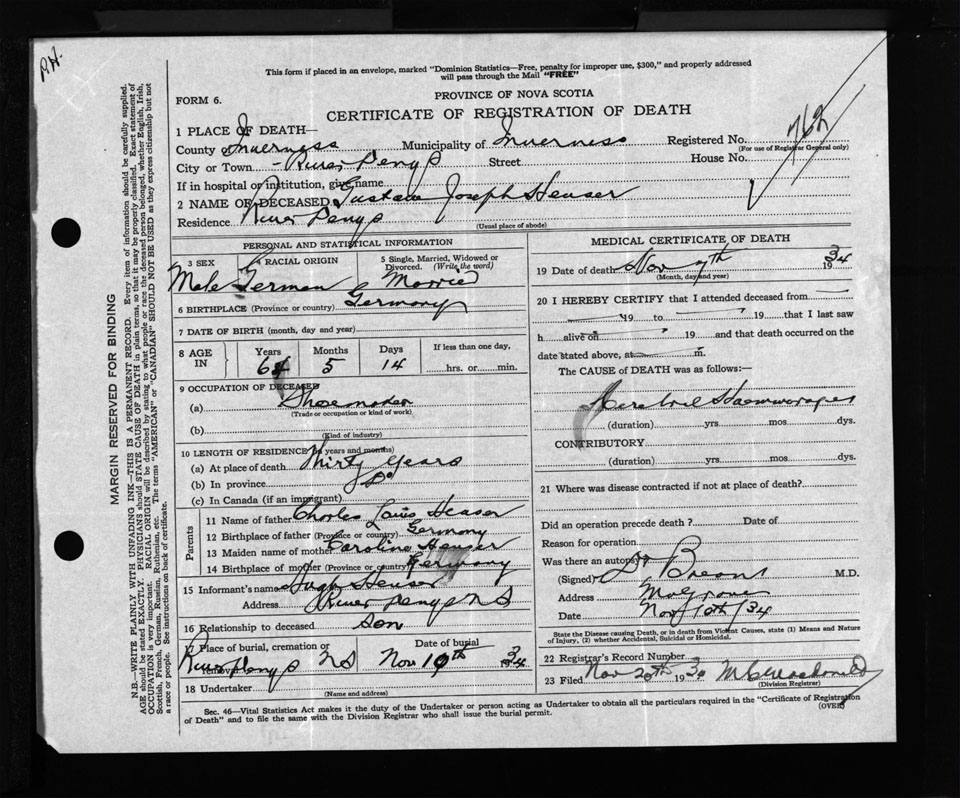 P.H.
This form if placed in an envelope, marked "Dominion Statistics—Free, penalty for improper use, $300," and properly addressed
will pass through the Mail "FREE"
PROVINCE OF NOVA SCOTIA
FORM 6.
CERTIFICATE OF REGISTRATION OF DEATH
1 PLACE OF DEATH—
County of Inverness Municipality of Inverness Registered No. 762
(For use of Registrar General only)
City or Town River Denys Street House No.
If in hospital or institution, give name
2 NAME OF DECEASED Gustave Joseph Heuser
Residence River Denys
(Usual place of abode)
PERSONAL AND STATISTICAL INFORMATION
3 SEX Male
4 RACIAL ORIGIN German
5 Single, Married, Widowed or Divorced. (Write the word) Married
6 BIRTHPLACE (Province or country) Germany
7 DATE OF BIRTH (month, day and year)
8 AGE IN Years Months Days If less than one day,
64 5 14 hrs. or min.
9 OCCUPATION OF DECEASED
(a) Shoemaker
(Trade or occupation or kind of work)
(b)
(Kind of industry)
10 LENGTH OF RESIDENCE (in years and months)
(a) At place of death Thirty Years
(b) In province Do
(c) In Canada (if an immigrant)
Parents
11 Name of father Charles Louis Heuser
12 Birthplace of father (Province or country) Germany
13 Maiden name of mother Caroline Heuser
14 Birthplace of mother (Province or country) Germany
15 Informant's name Hugh Heuser
Address River Denys N S
16 Relationship to deceased son
17 Place of burial, cremation or Date of burial
River Denys N S Nov 10th 1934
18 Undertaker
(Name and address)
MEDICAL CERTIFICATE OF DEATH
19 Date of death Nov 7th 1934
(Month, day and year)
20 I HEREBY CERTIFY that I attended deceased from
19 to 19 that I last saw
h alive on 19 and that death occurred on
date stated above, at m.
The CAUSE of DEATH was as follows:—
Cerebral Haemorrhages
(duration) yrs mos dys.
CONTRIBUTORY
(duration) yrs mos dys.
21 Where was disease contracted if not at place of death?
Did an operation precede death? Date of
Reason for operation
Was there an autopsy?
(Signed) M.D.
Address Mulgrave
Date Nov 10th/34
State the Disease causing Death, or in death from Violent Causes, state (1) Means and Nature
of Injury, (2) whether Accidental, Suicidal or Homicidal.
22 Registrar's Record Number
23 Filed Nov 20th 1934
(Division Registrar)
Sec. 46—Vital Statistics Act makes it the duty of the Undertaker or person acting as Undertaker to obtain all the particulars required in the "Certificate of Registration
of Death" and to file the same with the Division Registrar who shall issue the burial permit.
(OVER)
MARGIN RESERVED FOR BINDING
N.B.—WRITE PLAINLY WITH UNFADING INK—THIS IS A PERMANENT RECORD. Every item of information should be carefully supplied.
AGE should be stated EXACTLY. PHYSICIANS should STATE CAUSE OF DEATH in plain terms, so that it may be properly classified. Exact statement of
OCCUPATION is very important. RACIAL ORIGIN will be described by stating to what people or race the deceased person belonged, whether English, Irish,
Scottish, French, German, Russian, Ruthenian, etc. The terms "AMERICAN" or "CANADIAN" SHOULD NOT BE USED as they express citizenship but not
a race or people. See instructions on back of certificate.